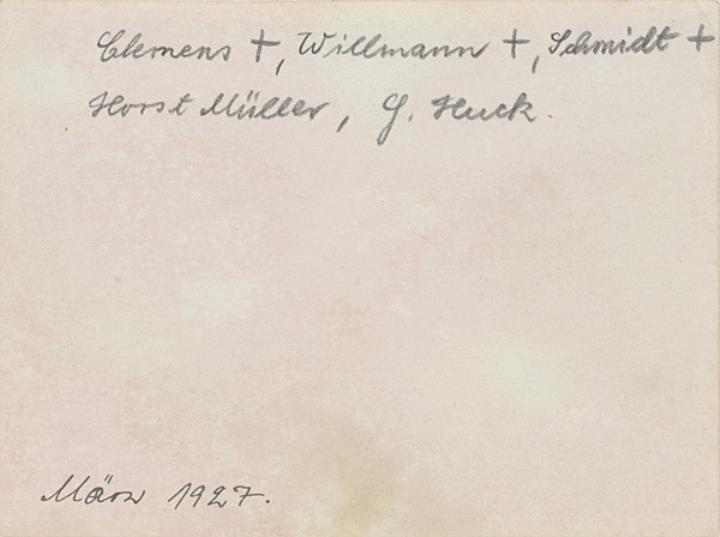 Clemens †, Willmann †, Schmidt †
Horst Müller, G. Huck.
März 1927.